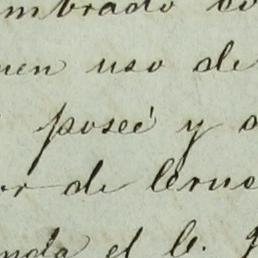 mbrado
uen uso de
posee y
or de Cruc
nda el C.